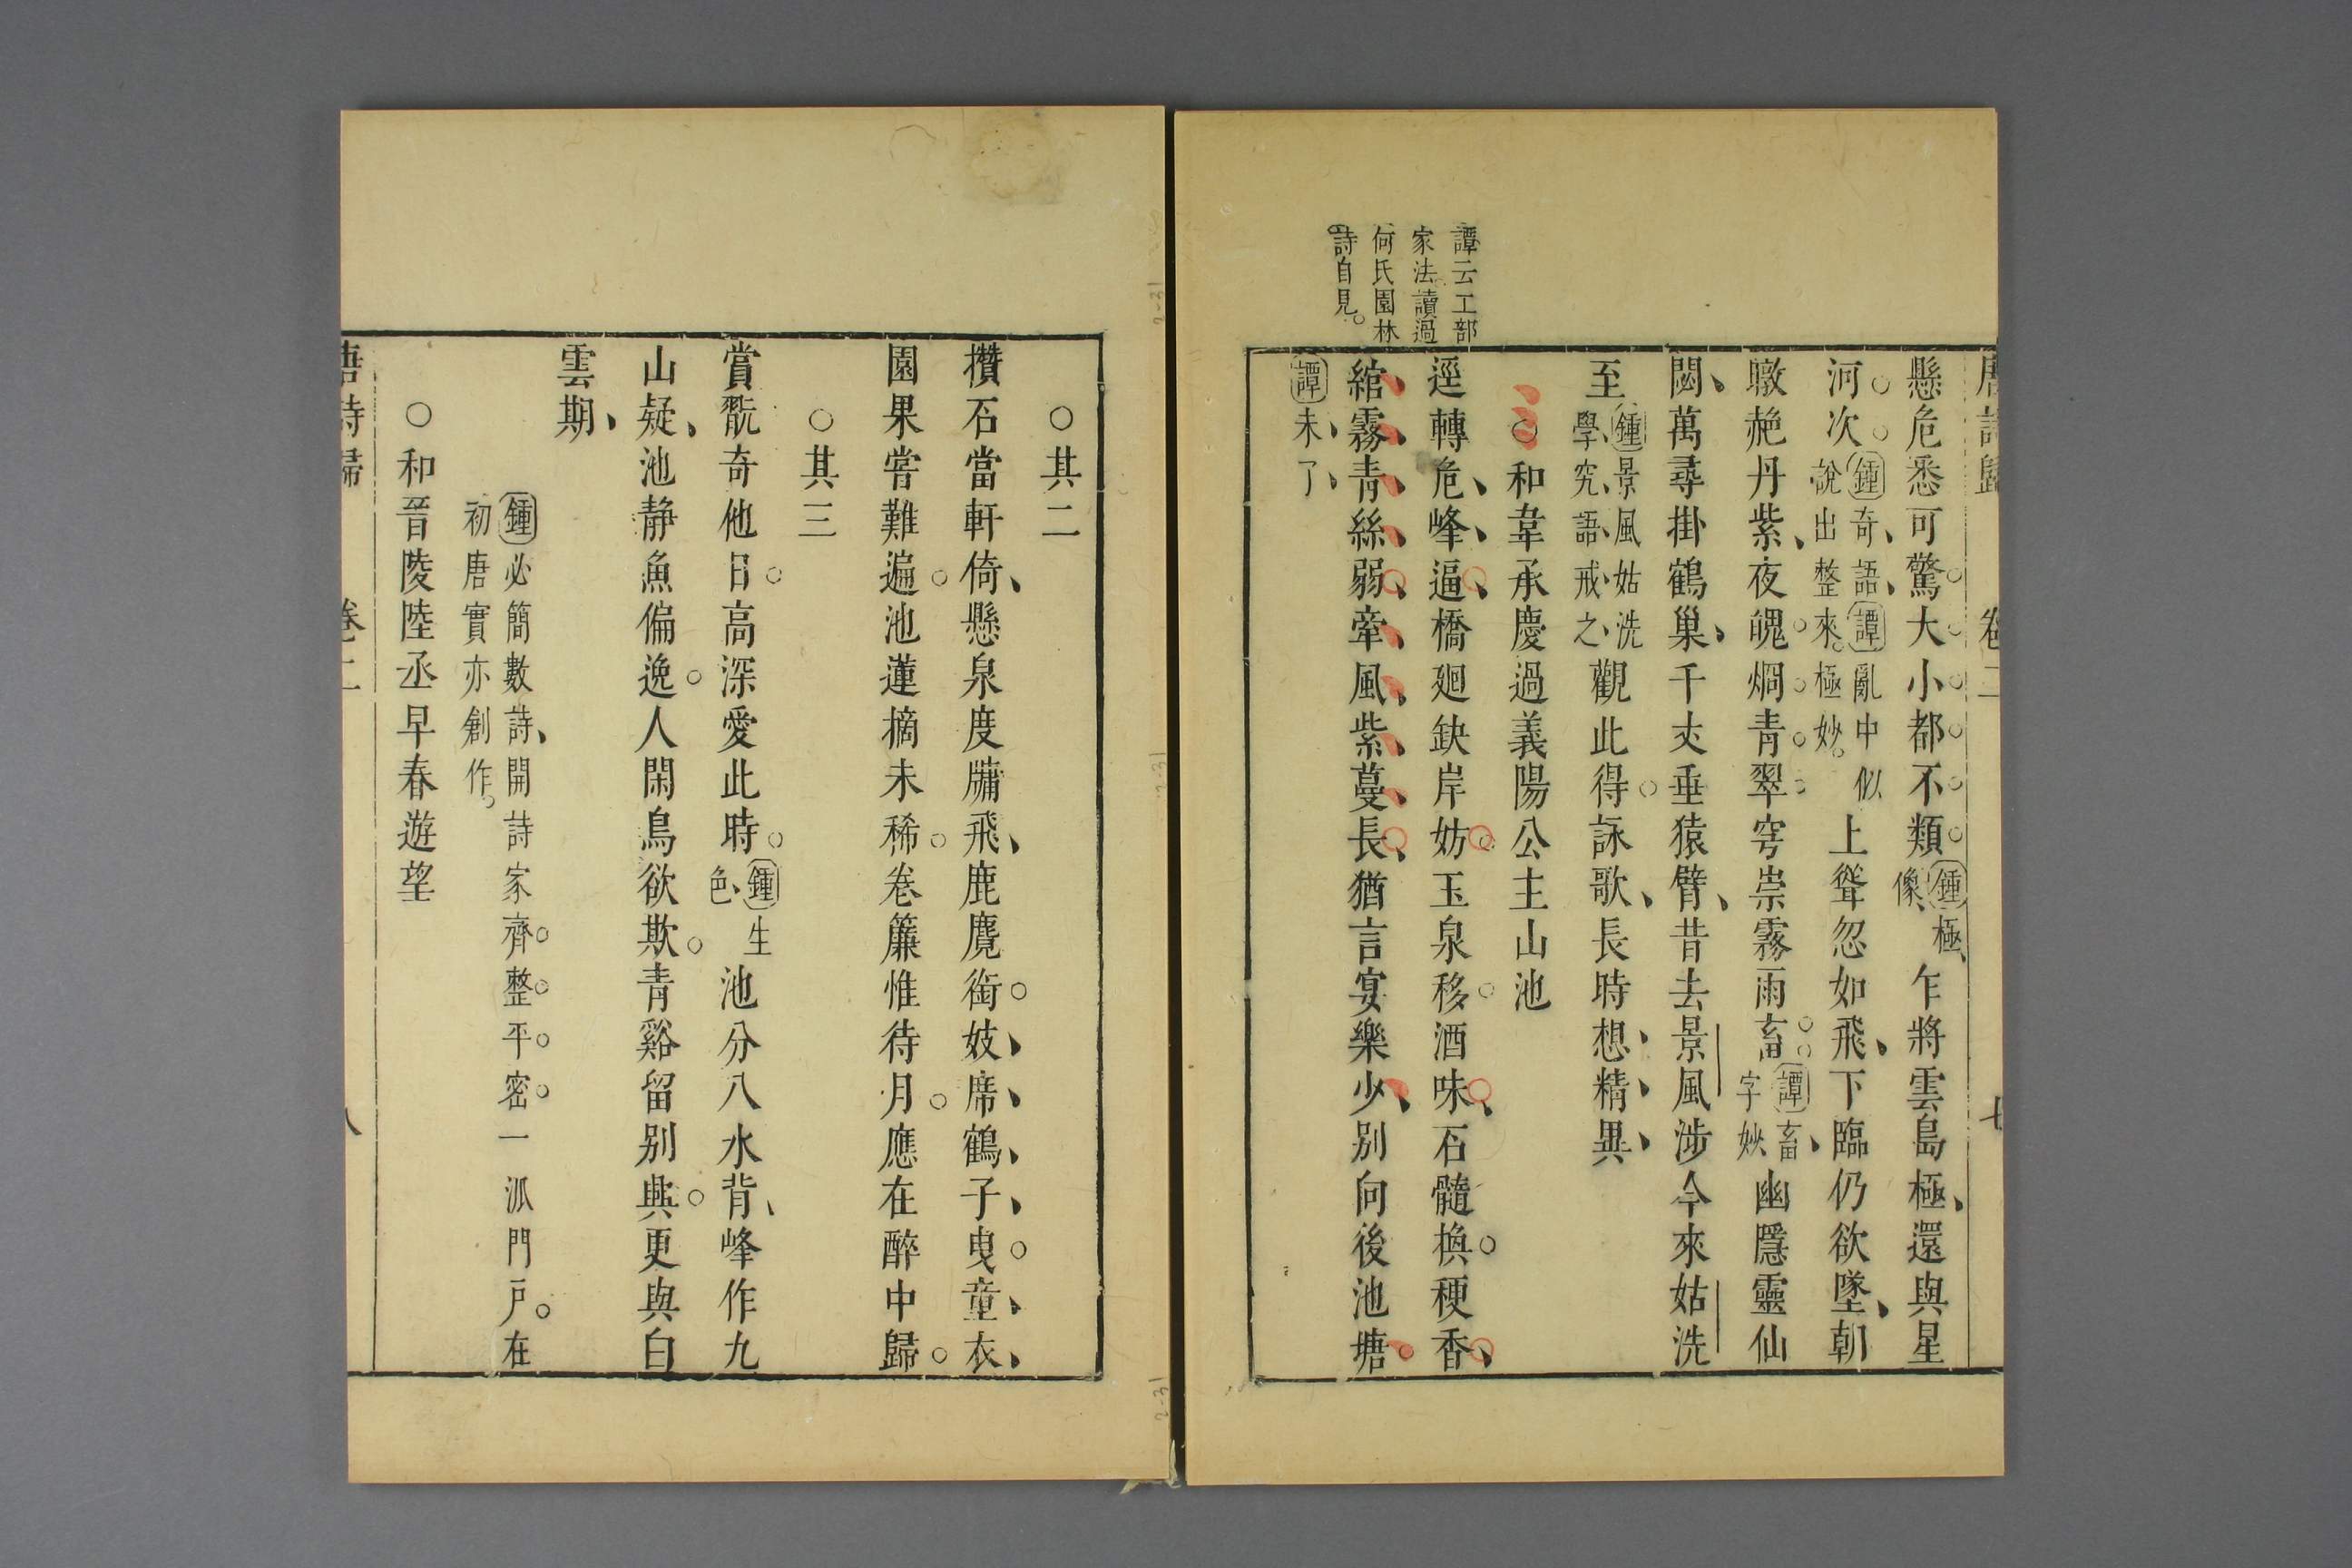 唐詩歸 卷二 七
懸危悉可驚大小都不類鍾極像乍將雲島極還與星
河次鍾奇語譚亂中似說出整來極妙上聳忽如飛下臨仍欲墜朝
暾赩丹紫夜魄烱青翠穹崇霧雨畜譚畜字妙幽隱靈仙
閟萬尋掛鶴巢千丈垂猿臂昔去景風涉今來姑洗
至鍾景風姑洗學究語戒之觀此得詠歌長時想精異
○和韋承慶過義陽公主山池
逕轉危峰逼橋廻缺岸妨玉泉移酒味石髓換粳香
綰霧青絲弱牽風紫蔓長猶言宴樂少別向後池塘
譚未了
譚云工部
家法讀過
何氏園林
詩自見
○其二
攢石當軒倚懸泉度牗飛鹿麛銜妓席鶴子曳童衣
園果嘗難遍池蓮摘未稀卷簾惟待月應在醉中歸
○其三
賞翫奇他日高深愛此時鍾生色池分八水背峰作九
山疑池静魚偏逸人閑鳥欲欺青谿留别與更與白
雲期
鍾必簡數詩開詩家齊整平密一派門戸在
初唐實亦創作
○和晉陵陸丞早春遊望
唐詩歸 卷二 八